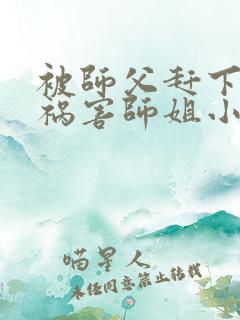 被師父赶下
祸害師姐小
喵星人
未经同意禁止转载